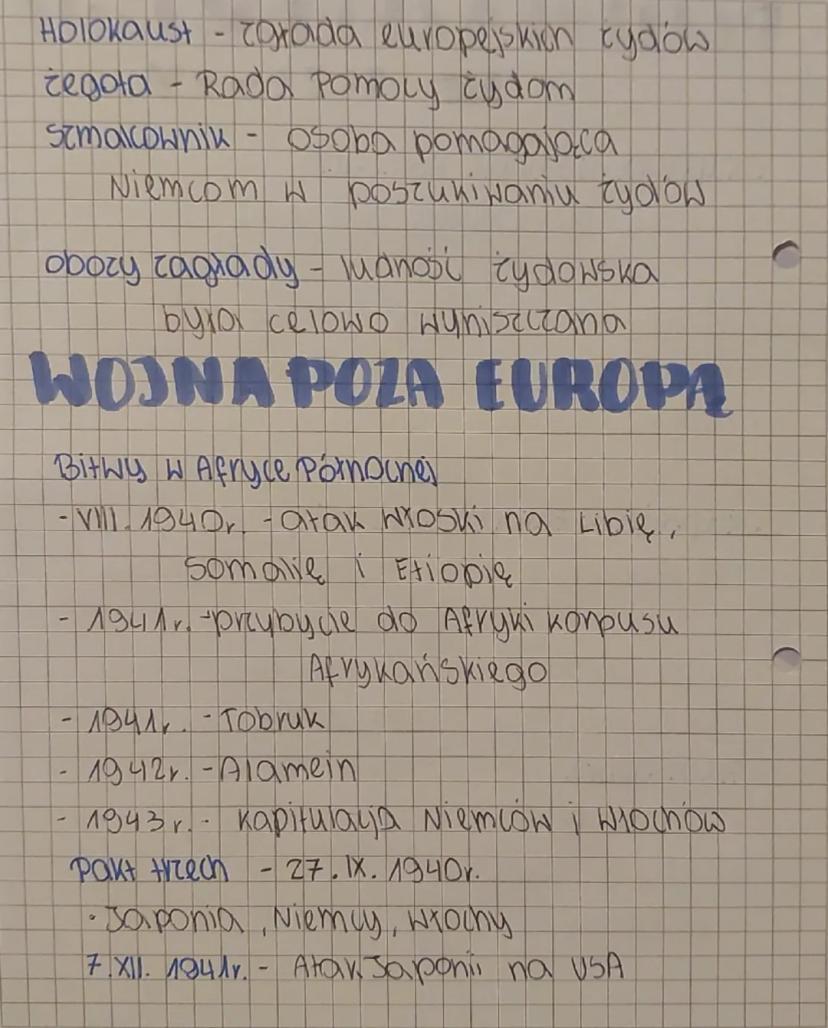 Holokaust - zgłada europejskich żydów
żegota - Rada Pomocy żydom
szmalcownik - osoba pomagająca
Niemcom w poszukiwaniu żydów
obozy zagłady - ludność żydowska
była celowo wyniszczana
WOJNA POZA EUROPĄ
Bitwy w Afryce Północnej
- VIII. 1940r. - atak włoski na Libię,
Somalię i Etiopię
- 1941r. - przybycie do Afryki korpusu
Afrykańskiego
- 1941r. - Tobruk
- 1942r. - Alamein
- 1943r. - kapitulacja Niemców i Włochów
Pakt trzech - 27.IX.1940r.
• Japonia, Niemcy, Włochy
7.XII.1941r. - Atak Japonii na USA